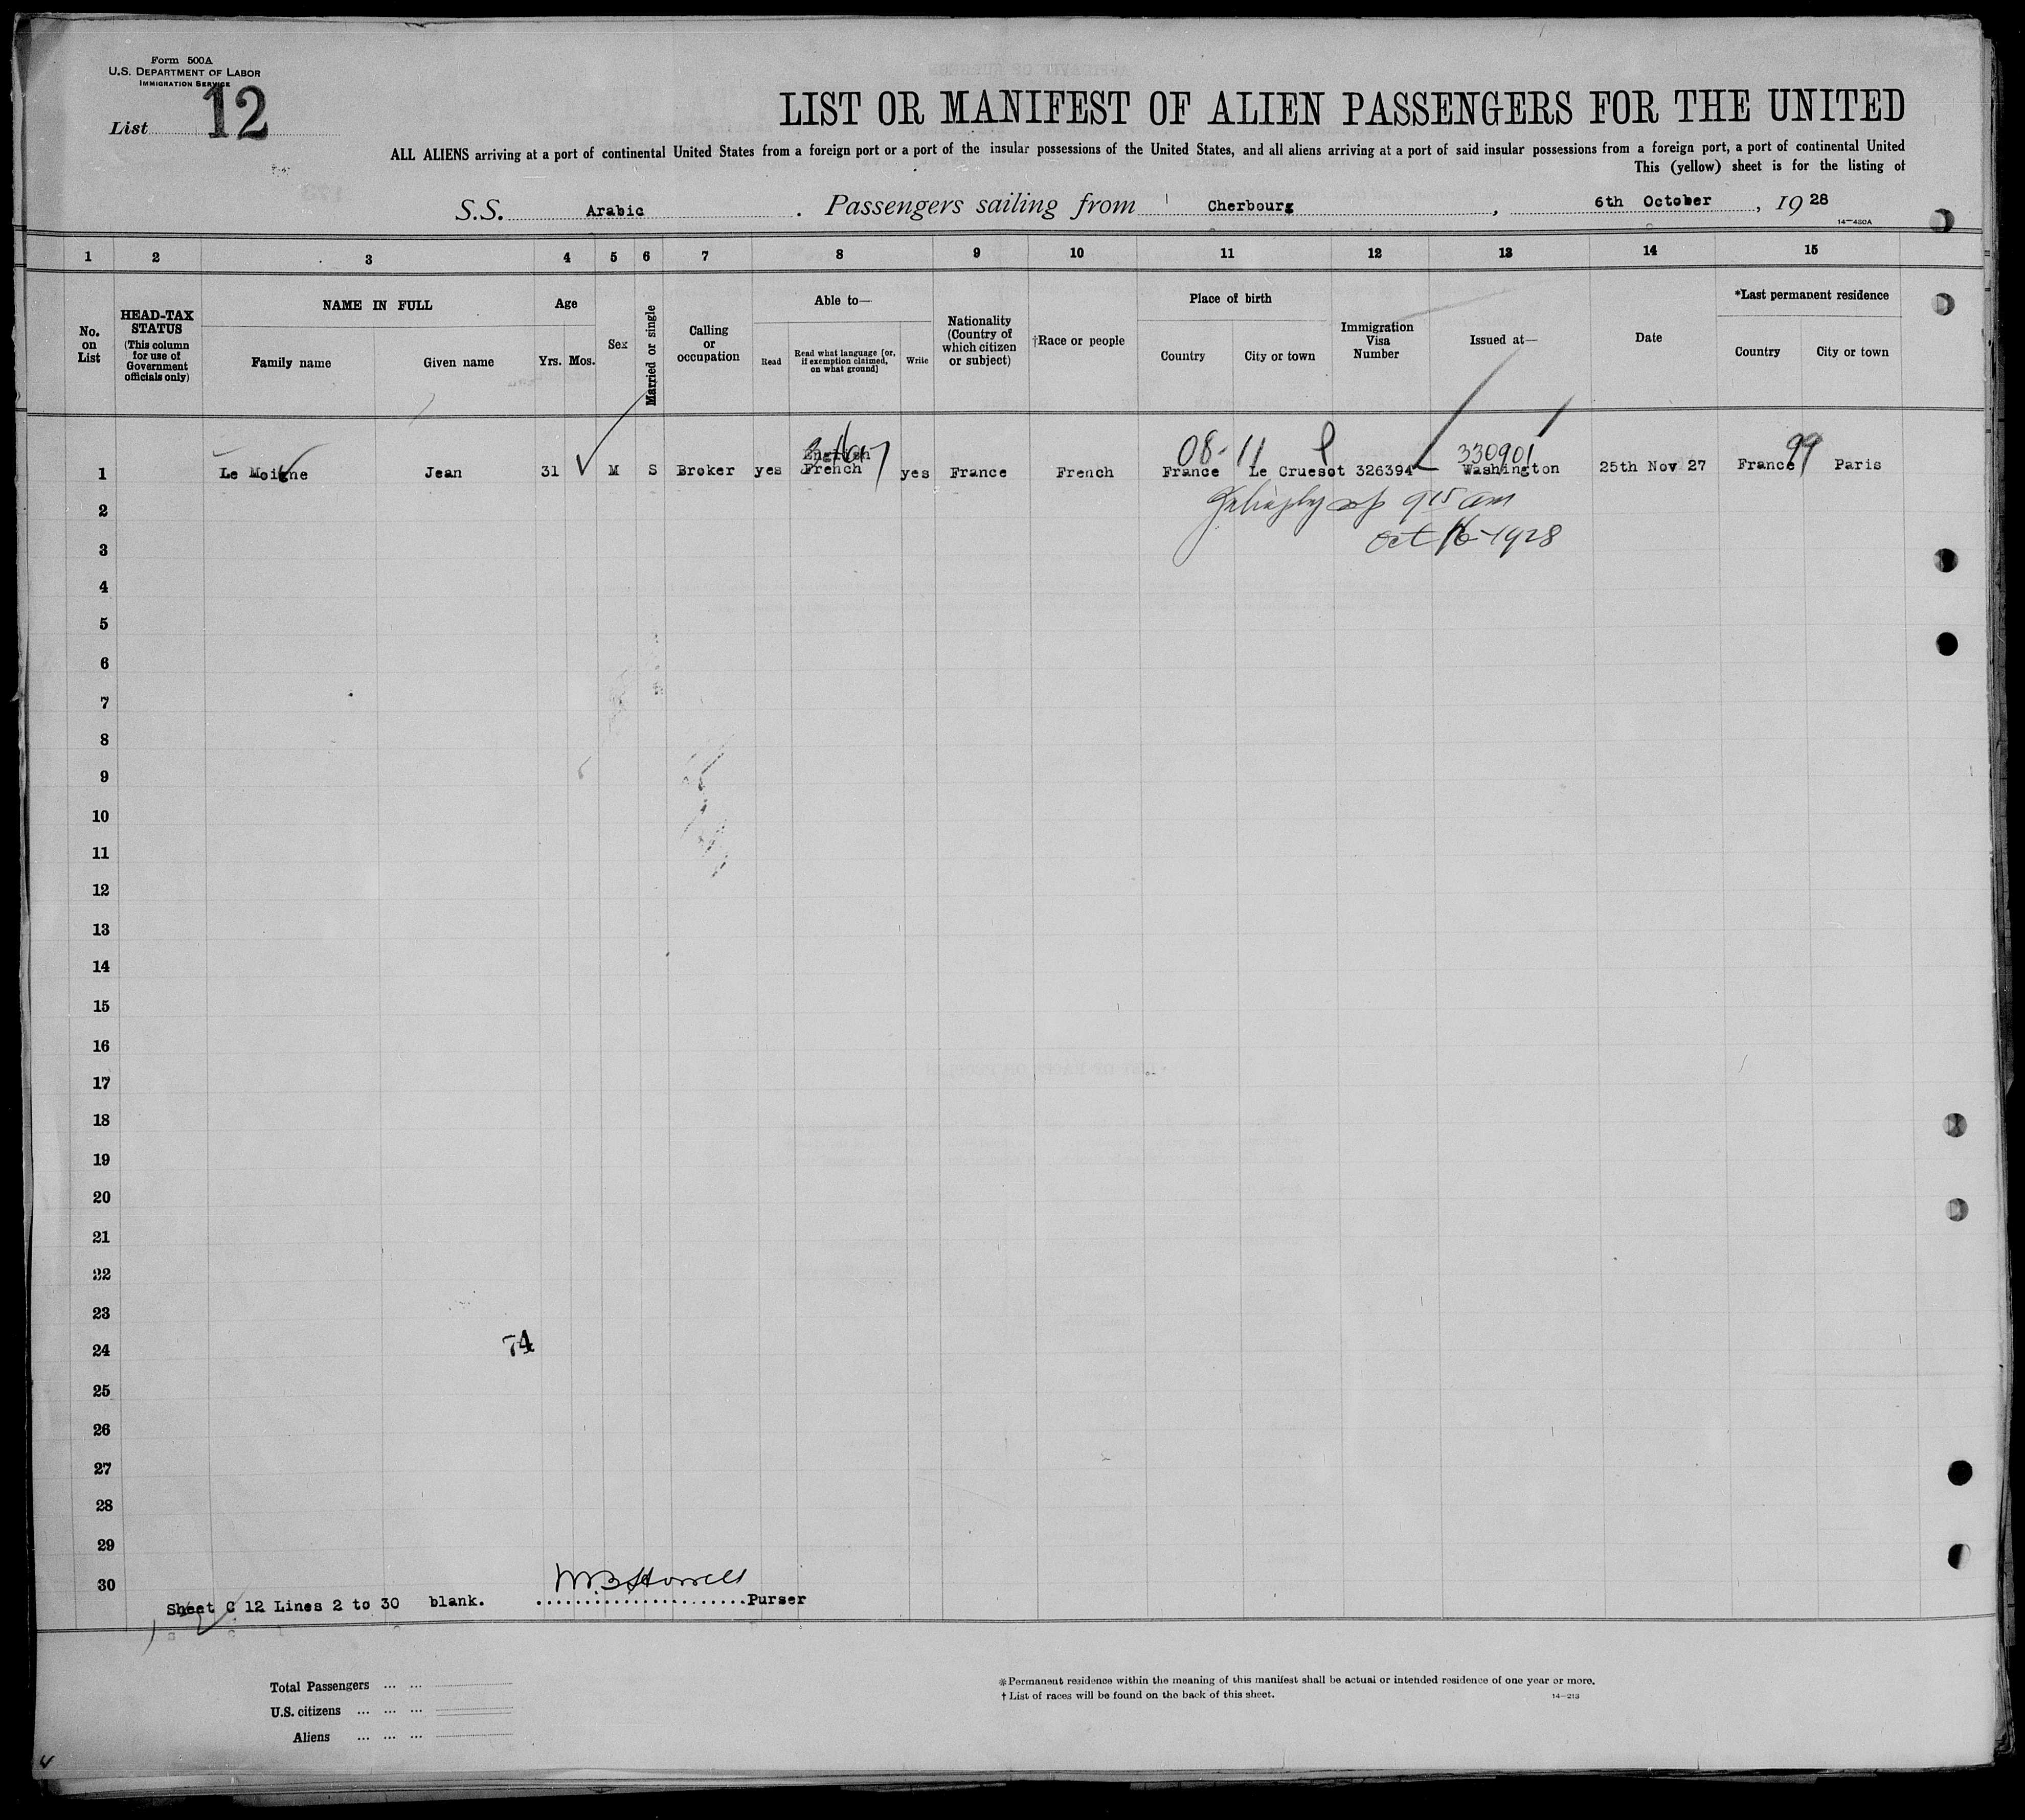 Form 500A
U.S. DEPARTMENT OF LABOR
IMMIGRATION SERVICE
List 12
LIST OR MANIFEST OF ALIEN PASSENGERS FOR THE UNITED
ALL ALIENS arriving at a port of continental United States from a foreign port or a port of the insular possessions of the United States, and all aliens arriving at a port of said insular possessions from a foreign port, a port of continental United
This (yellow) sheet is for the listing of
S.S. Arabic . Passengers sailing from Cherbourg , 6th October , 19 28
14-430A
1 2 3 4 5 6 7 8 9 10 11 12 13 14 15
No. on List
HEAD-TAX STATUS (This column for use of Government officials only)
NAME IN FULL
Family name Given name
Age
Yrs. Mos.
Sex
Married or single
Calling or occupation
Able to—
Read
Read what language [or, if exemption claimed, on what ground]
Write
Nationality (Country of which citizen or subject)
†Race or people
Place of birth
Country City or town
Immigration Visa Number
Issued at—
Date
*Last permanent residence
Country City or town
08-11 330901 99
English
1 Le Moigne Jean 31 M S Broker yes French yes France French France Le Cruesot 326394 Washington 25th Nov 27 France Paris
2 915 am
3 Oct 16-1928
4
5
6
7
8
9
10
11
12
13
14
15
16
17
18
19
20
21
22
23
24 74
25
26
27
28
29
30
Sheet C 12 Lines 2 to 30 blank. ......................Purser
Total Passengers ... ...
U.S. citizens ... ... ...
Aliens ... ... ...
*Permanent residence within the meaning of this manifest shall be actual or intended residence of one year or more.
† List of races will be found on the back of this sheet. 14-213